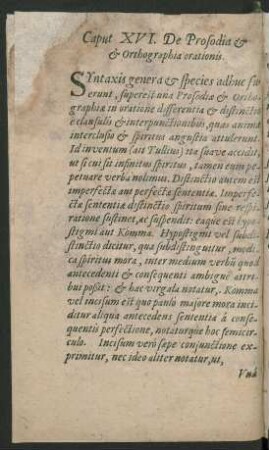 Caput XVI. De Prosodia &
& Orthographia orationis.
SYntaxis genera & species adhuc fu-
erunt, superest una Prosodiæ & Ortho-
graphiæ in oratione differentia & distinctio
e clausulis & interpunctionibus, quas animæ
interclusio & spiritus angustiæ attulerunt.
Id inventum (ait Tullius) ita suave accidit,
ut si cui sit infinitus spiritus, tamen eum per-
petuare verba nolimus. Distinctio autem est
imperfectæ aut perfectæ sententiæ. Imperfe-
ctæ sententiæ distinctio spiritum sine respi-
ratione sustinet, ac suspendit: eaque est hypo-
stigmi aut Komma. Hypostigmi vel subdi-
stinctio dicitur, qua subdistinguitur, modi-
ca spiritus mora, inter medium verbū quod
antecedenti & consequenti ambiguè attri-
bui possit: & hac virgula notatur,. Komma
vel incisum est quo paulò majore mora inci-
ditur aliqua antecedens sententia à conse-
quentis perfectione, notaturque hoc semicir-
culo. Incisum verò sæpe conjunctione ex-
primitur, nec ideo aliter notatur, ut,